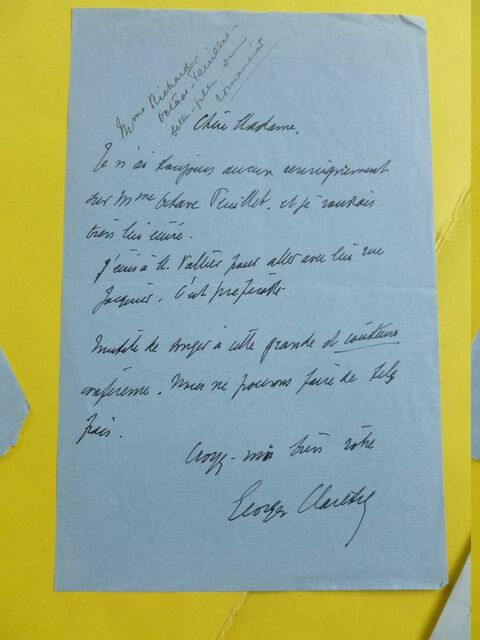 Mme Richard
Octave-Feuillet
belle-fille du
romancier
Chère Madame,
Je n'ai toujours aucun renseignement
sur Mme Octave Feuillet. et je voudrais
bien lui écrire.
J'écris à M. Vallier pour aller avec lui rue
Jacquier. C'est préférable.
Inutile de songer à cette grande et coûteuse
conférence. Nous ne pouvons faire de tels
frais.
Croyez-moi bien vôtre
Georges Claretie